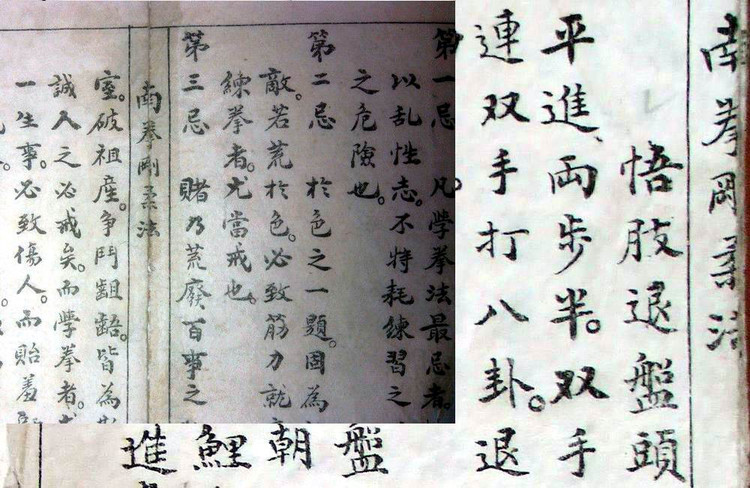 南拳剛柔法
悟肢退盤頭
平進両步半。双手
連双手打八卦。退
第一忌 凡學拳法最忌者。
以乱性志。不特耗練習之
之危險也。
第二忌 於色之一題。固為
敵。若荒於色。必致筋力就
練拳者。尤當戒也。
第三忌 賭乃荒廢百事之
南拳剛柔法
室。破祖產。争鬥齟齬。皆為
誠人之必戒矣。而學拳者。
一生事。必致傷人。而貽羞
盤
朝
鯉
進